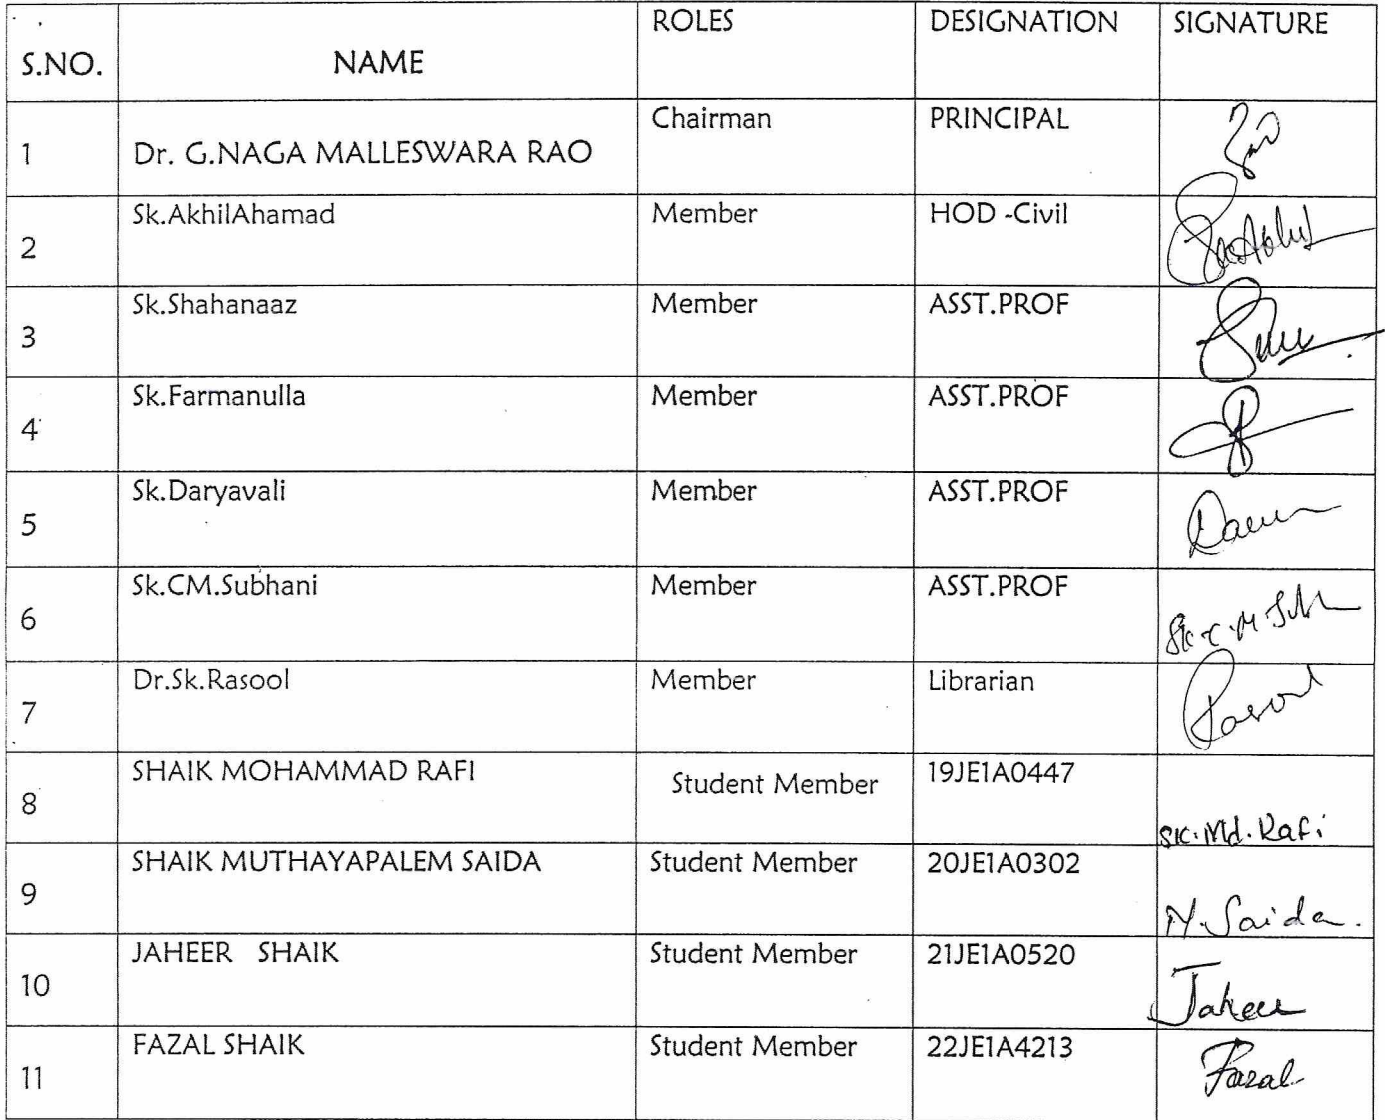 S.NO. NAME ROLES DESIGNATION SIGNATURE
1 Dr. G.NAGA MALLESWARA RAO Chairman PRINCIPAL
2 Sk.AkhilAhamad Member HOD -Civil
3 Sk.Shahanaaz Member ASST.PROF
4 Sk.Farmanulla Member ASST.PROF
5 Sk.Daryavali Member ASST.PROF
6 Sk.CM.Subhani Member ASST.PROF
7 Dr.Sk.Rasool Member Librarian Rasool
8 SHAIK MOHAMMAD RAFI Student Member 19JE1A0447 SK.Md.Rafi
9 SHAIK MUTHAYAPALEM SAIDA Student Member 20JE1A0302 M.Saida.
10 JAHEER SHAIK Student Member 21JE1A0520 Jaheer
11 FAZAL SHAIK Student Member 22JE1A4213 Fazal